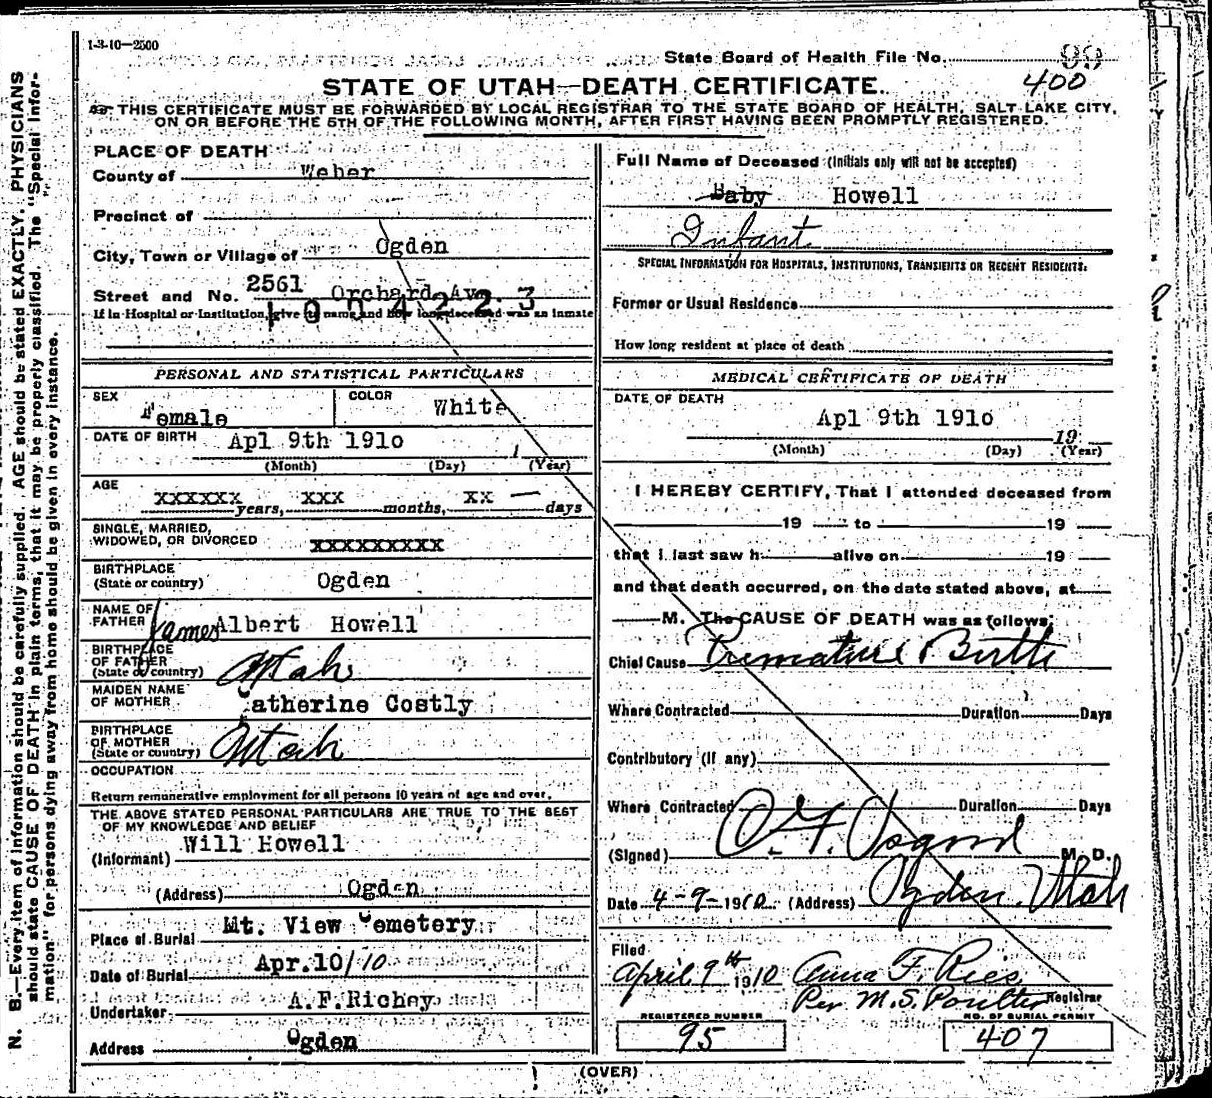 1-3-10—2500
State Board of Health File No. 99
400
STATE OF UTAH—DEATH CERTIFICATE.
THIS CERTIFICATE MUST BE FORWARDED BY LOCAL REGISTRAR TO THE STATE BOARD OF HEALTH, SALT LAKE CITY,
ON OR BEFORE THE 5TH OF THE FOLLOWING MONTH, AFTER FIRST HAVING BEEN PROMPTLY REGISTERED.
N. B.—Every item of information should be carefully supplied. AGE should be stated EXACTLY. PHYSICIANS
should state CAUSE OF DEATH in plain terms, that it may be properly classified. The "Special Infor-
mation" for persons dying away from home should be given in every instance.
PLACE OF DEATH
County of Weber
Precinct of
City, Town or Village of Ogden
Street and No. 2561 Orchard Av.
1004223
If in Hospital or Institution, give its name and how long deceased was an inmate
PERSONAL AND STATISTICAL PARTICULARS
SEX Female COLOR White
DATE OF BIRTH Apl 9th 191o 1
(Month) (Day) (Year)
AGE
xxxxxx years, xxx months, xx — days
SINGLE, MARRIED,
WIDOWED, OR DIVORCED xxxxxxxxx
BIRTHPLACE
(State or country) Ogden
NAME OF
FATHER James Albert Howell
BIRTHPLACE
OF FATHER
(State or country) Utah
MAIDEN NAME
OF MOTHER Catherine Costly
BIRTHPLACE
OF MOTHER
(State or country) Utah
OCCUPATION
Return remunerative employment for all persons 10 years of age and over.
THE ABOVE STATED PERSONAL PARTICULARS ARE TRUE TO THE BEST
OF MY KNOWLEDGE AND BELIEF
(Informant) Will Howell
(Address) Ogden
Place of Burial Mt. View Cemetery
Date of Burial Apr.10/10
Undertaker A.F.Richey
Address Ogden
Full Name of Deceased (Initials only will not be accepted)
Baby Howell
Infant
SPECIAL INFORMATION FOR HOSPITALS, INSTITUTIONS, TRANSIENTS OR RECENT RESIDENTS:
Former or Usual Residence
How long resident at place of death
MEDICAL CERTIFICATE OF DEATH
DATE OF DEATH
Apl 9th 191o
19
(Month) (Day) (Year)
I HEREBY CERTIFY, That I attended deceased from
19 to 19
that I last saw h alive on 19
and that death occurred, on the date stated above, at
M. The CAUSE OF DEATH was as follows:
Chief Cause Premature Birth
Where Contracted Duration Days
Contributory (if any)
Where Contracted Duration Days
(Signed) O. F. Osgood M. D.
Date 4-9-1910 (Address) Ogden Utah
Filed
April 9th 1910 Anna F. Ries
Per M.S. Poulter Registrar
REGISTERED NUMBER
95
NO. OF BURIAL PERMIT
407
(OVER)